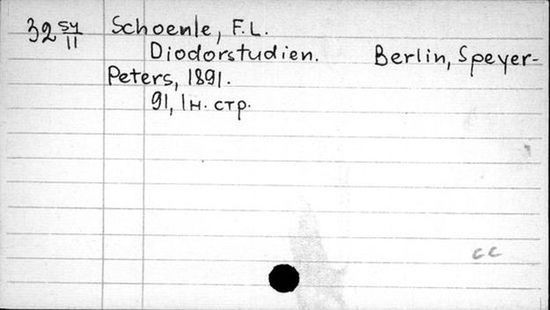 32 54/11 Schoenle, F.L.
Diodorstudien. Berlin, Speyer-
Peters, 1891.
91, 1 н. стр.
cc